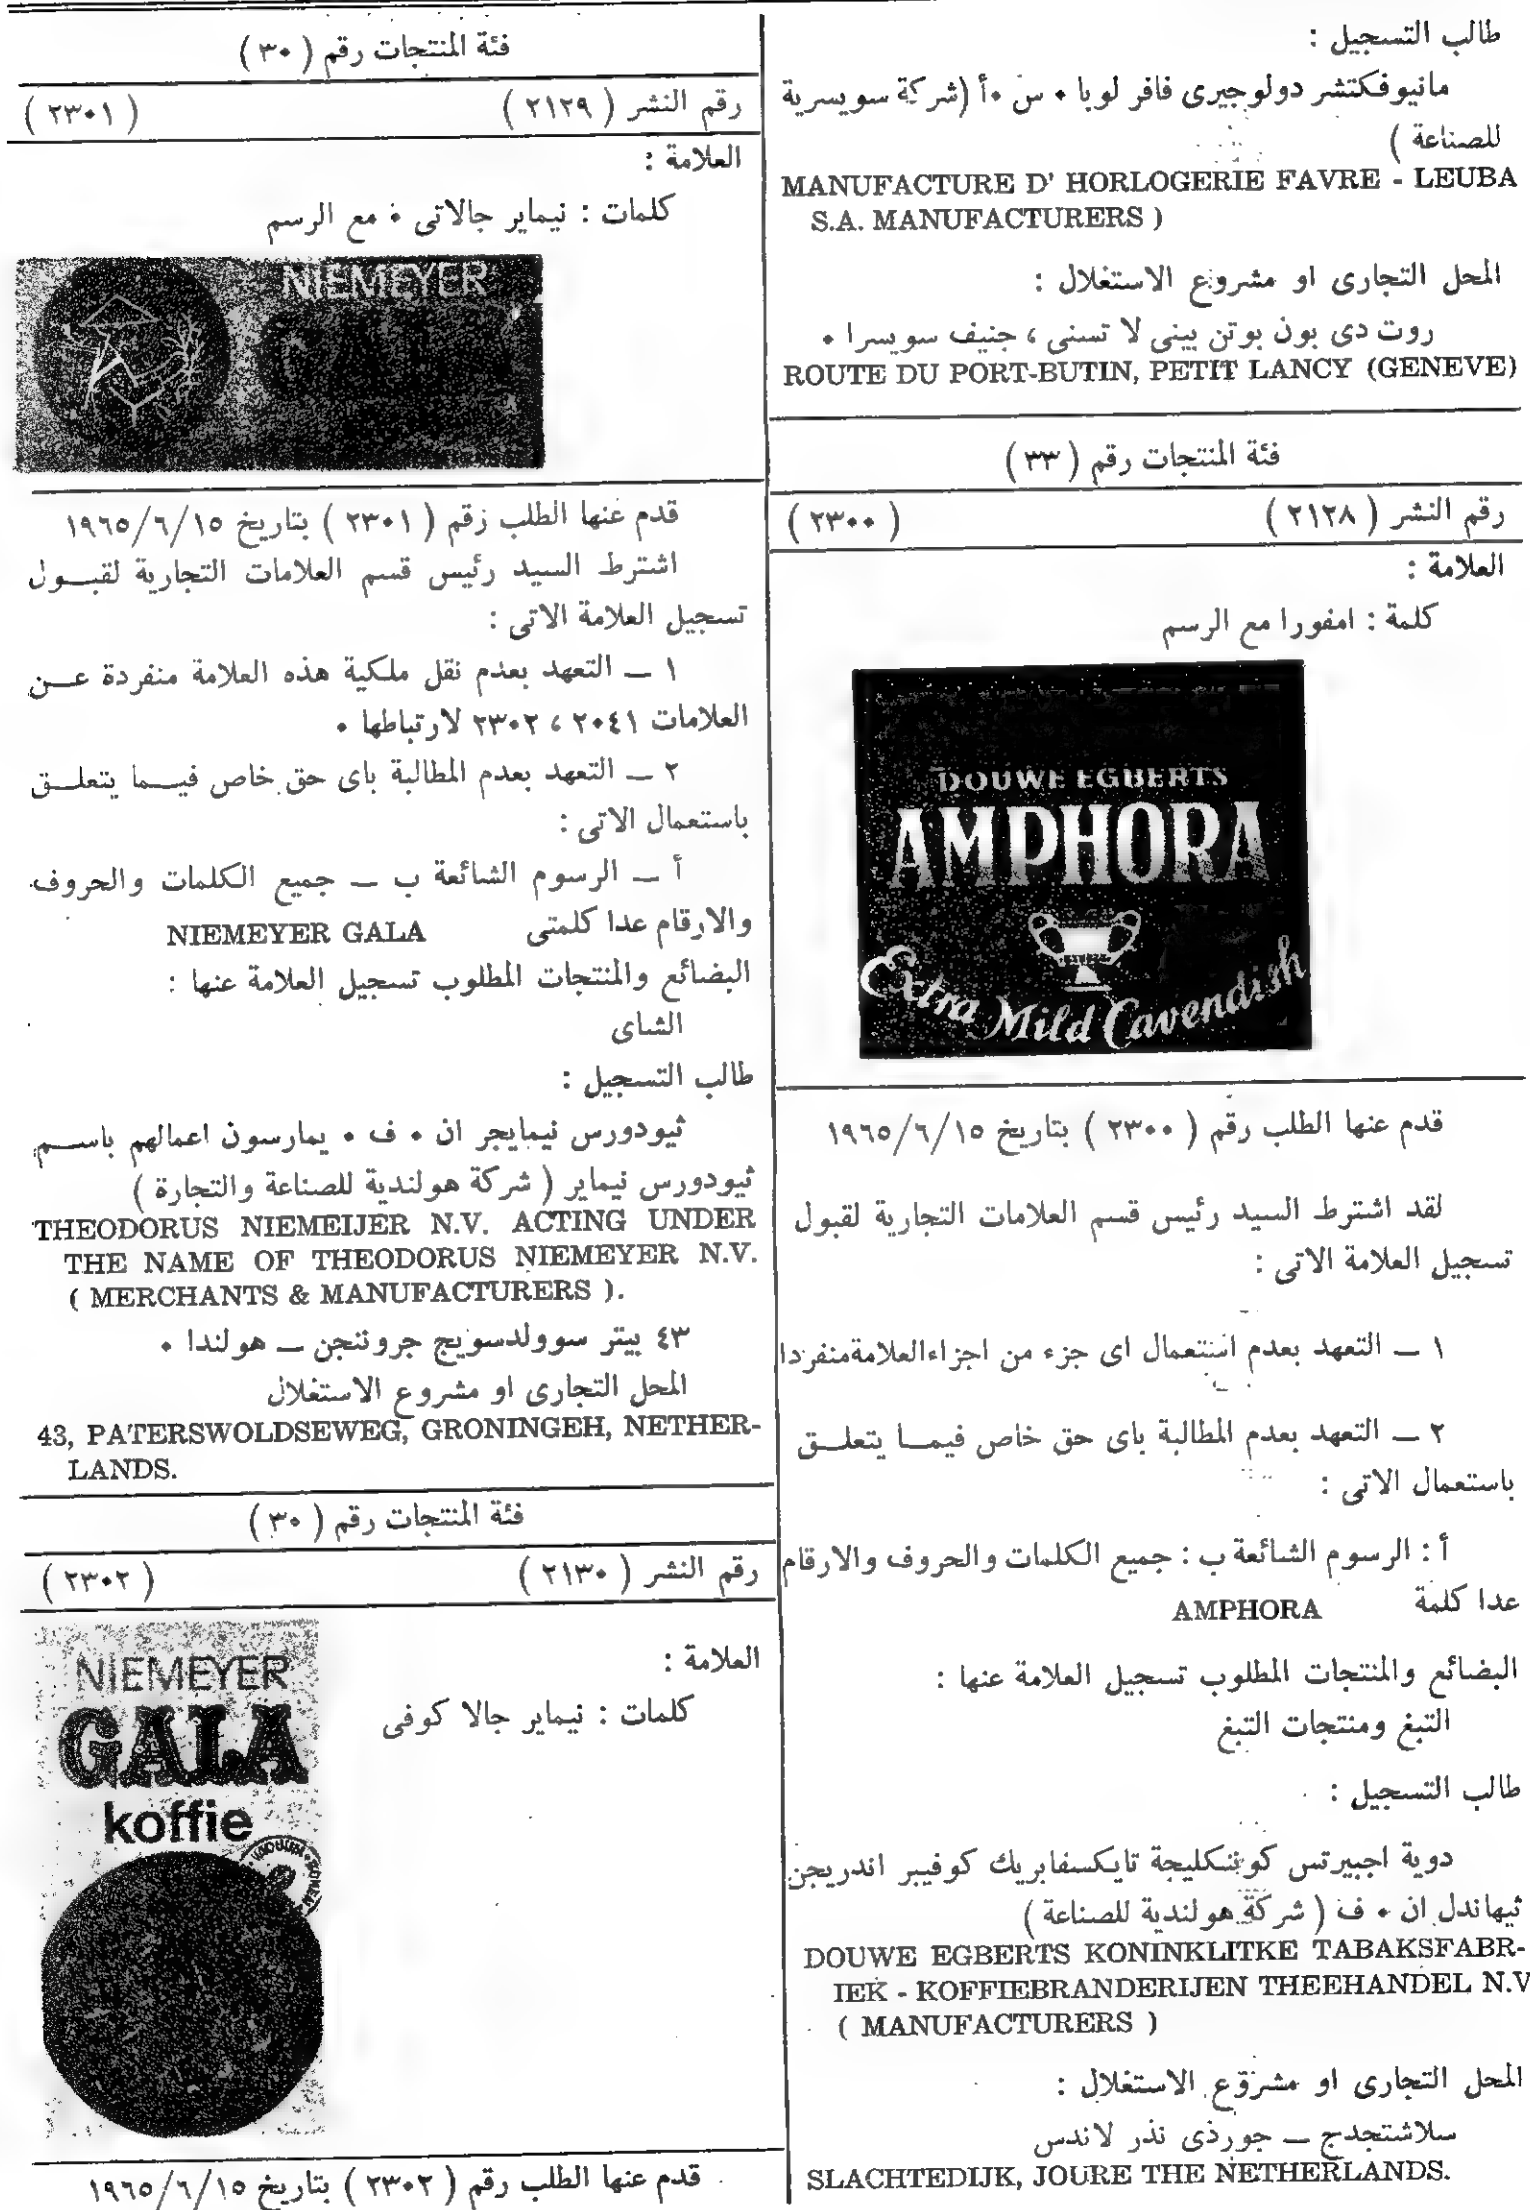 طالب التسجيل :
مانيوفكتشر دولوجيرى فافر لوبا ٠ س ٠أ (شركة سويسرية
للصناعة )
MANUFACTURE D' HORLOGERIE FAVRE - LEUBA
S.A. MANUFACTURERS )
المحل التجارى او مشروع الاستغلال :
روت دى بون بوتن بيتى لا تسنى ، جنيف سويسرا ٠
ROUTE DU PORT-BUTIN, PETIT LANCY (GENEVE)
فئة المنتجات رقم ( ٣٣ )
رقم النشر ( ٢١٢٨ ) ( ٢٣٠٠ )
العلامة :
كلمة : امفورا مع الرسم
DOUWE EGBERTS
AMPHORA
Extra Mild Cavendish
قدم عنها الطلب رقم ( ٢٣٠٠ ) بتاريخ ١٩٦٥/٦/١٥
لقد اشترط السيد رئيس قسم العلامات التجارية لقبول
تسجيل العلامة الاتى :
١ ــ التعهد بعدم استعمال اى جزء من اجزاءالعلامةمنفردا
٢ ــ التعهد بعدم المطالبة باى حق خاص فيمــا يتعلــق
باستعمال الاتى :
أ : الرسوم الشائعة ب : جميع الكلمات والحروف والارقام
عدا كلمة AMPHORA
البضائع والمنتجات المطلوب تسجيل العلامة عنها :
التبغ ومنتجات التبغ
طالب التسجيل :
دوية اجبيرتس كوننكليجة تايكسفابريك كوفيبر اندريجن
ثيهاندل ان ٠ ف ( شركة هولندية للصناعة )
DOUWE EGBERTS KONINKLITKE TABAKSFABR-
IEK - KOFFIEBRANDERIJEN THEEHANDEL N.V
( MANUFACTURERS )
المحل التجارى او مشروع الاستغلال :
سلاشتجدج ــ جورذى نذر لاندس
SLACHTEDIJK, JOURE THE NETHERLANDS.
فئة المنتجات رقم ( ٣٠ )
رقم النشر ( ٢١٢٩ ) ( ٢٣٠١ )
العلامة :
كلمات : نيماير جالاتى ٠ مع الرسم
NIEMEYER
قدم عنها الطلب رقم ( ٢٣٠١ ) بتاريخ ١٩٦٥/٦/١٥
اشترط السيد رئيس قسم العلامات التجارية لقبــول
تسجيل العلامة الاتى :
١ ــ التعهد بعدم نقل ملكية هذه العلامة منفردة عــن
العلامات ٢٠٤١ ، ٢٣٠٢ لارتباطها ٠
٢ ــ التعهد بعدم المطالبة باى حق خاص فيــما يتعلــق
باستعمال الاتى :
أ ــ الرسوم الشائعة ب ــ جميع الكلمات والحروف
والارقام عدا كلمتى NIEMEYER GALA
البضائع والمنتجات المطلوب تسجيل العلامة عنها :
الشاى
طالب التسجيل :
ثيودورس نيمايجر ان ٠ ف ٠ يمارسون اعمالهم باســم
ثيودورس نيماير ( شركة هولندية للصناعة والتجارة )
THEODORUS NIEMEIJER N.V. ACTING UNDER
THE NAME OF THEODORUS NIEMEYER N.V.
( MERCHANTS & MANUFACTURERS ).
٤٣ بيتر سوولدسويج جروننجن ــ هولندا ٠
المحل التجارى او مشروع الاستغلال
43, PATERSWOLDSEWEG, GRONINGEH, NETHER-
LANDS.
فئة المنتجات رقم ( ٣٠ )
رقم النشر ( ٢١٣٠ ) ( ٢٣٠٢ )
العلامة :
كلمات : نيماير جالا كوفى
NIEMEYER
GALA
koffie
قدم عنها الطلب رقم ( ٢٣٠٢ ) بتاريخ ١٩٦٥/٦/١٥